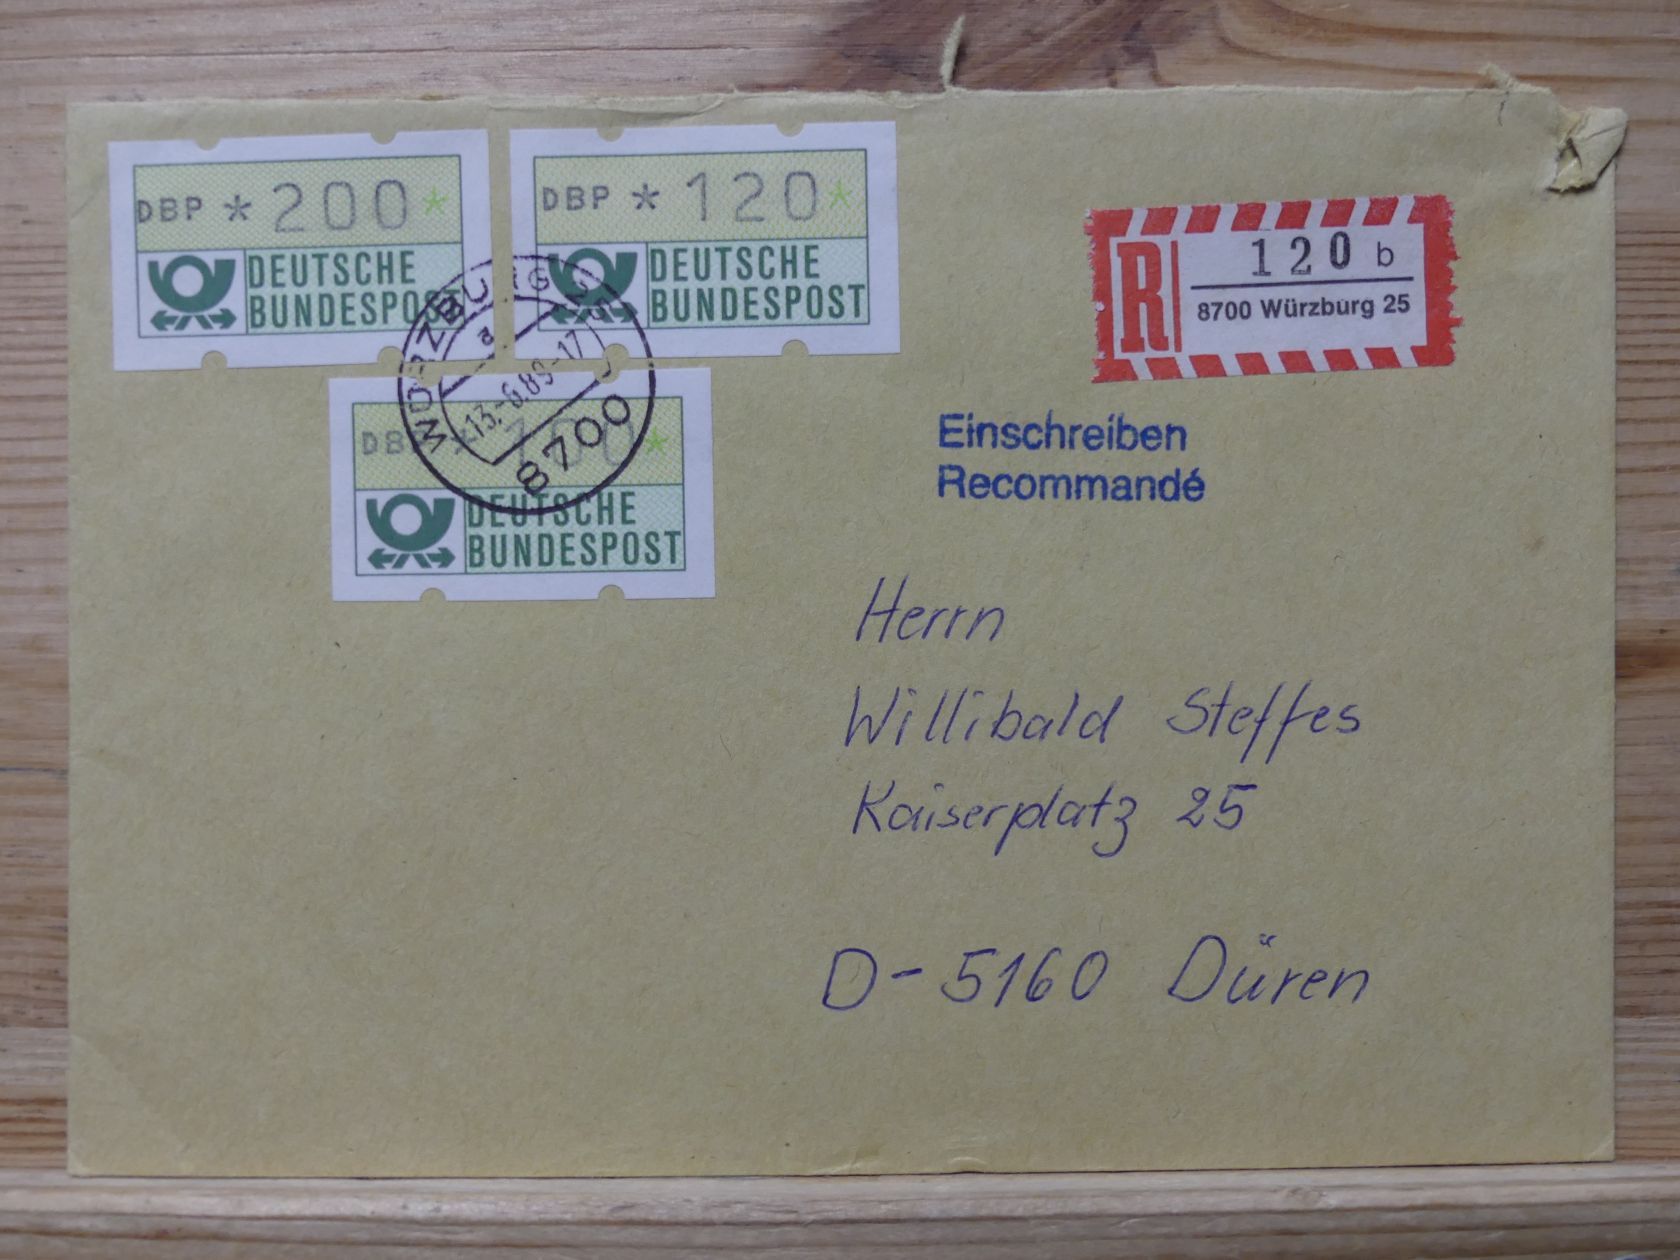 DBP * 200 *
DEUTSCHE
BUNDESPOST
DBP * 120 *
DEUTSCHE
BUNDESPOST
DBP * *
DEUTSCHE
BUNDESPOST
WÜRZBURG 25
a
13.-6.89-17
8700
R
120 b
8700 Würzburg 25
Einschreiben
Recommandé
Herrn
Willibald Steffes
Kaiserplatz 25
D-5160 Düren